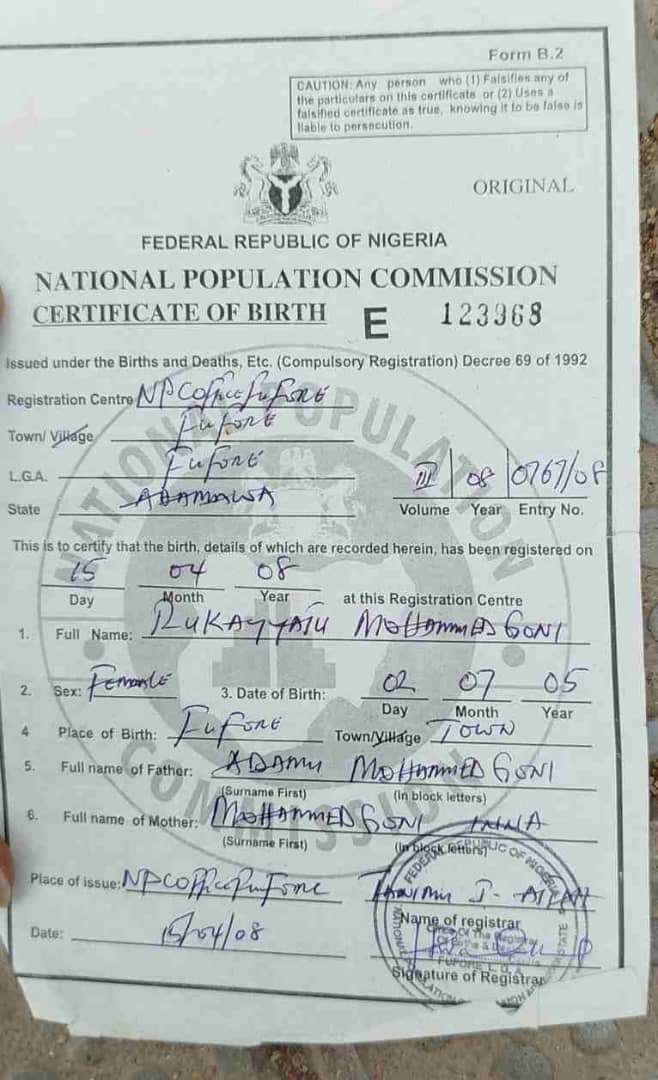 Form B.2
CAUTION: Any person who (1) Falsifies any of
the particulars on this certificate or (2) Uses a
falsified certificate as true, knowing it to be false is
liable to persecution.
ORIGINAL
FEDERAL REPUBLIC OF NIGERIA
NATIONAL POPULATION COMMISSION
CERTIFICATE OF BIRTH E 123968
Issued under the Births and Deaths, Etc. (Compulsory Registration) Decree 69 of 1992
Registration Centre NPC office FUFORE
Town/ Village FUFORE
L.G.A. FUFORE
III 08 0767/08
State ADAMAWA
Volume Year Entry No.
This is to certify that the birth, details of which are recorded herein, has been registered on
15 04 08
Day Month Year at this Registration Centre
1. Full Name: RUKAYYATU MOHAMMED GONI
2. Sex: FEMALE 3. Date of Birth: 02 07 05
Day Month Year
4 Place of Birth: FUFORE Town/Village TOWN
5. Full name of Father: ADAMU MOHAMMED GONI
(Surname First) (in block letters)
6. Full name of Mother: MOHAMMED GONI INNA
(Surname First) (in block letters)
Place of issue: NPC office Fufore
Name of registrar
Date: 15/04/08
Signature of Registrar
NATIONAL POPULATION COMMISSION